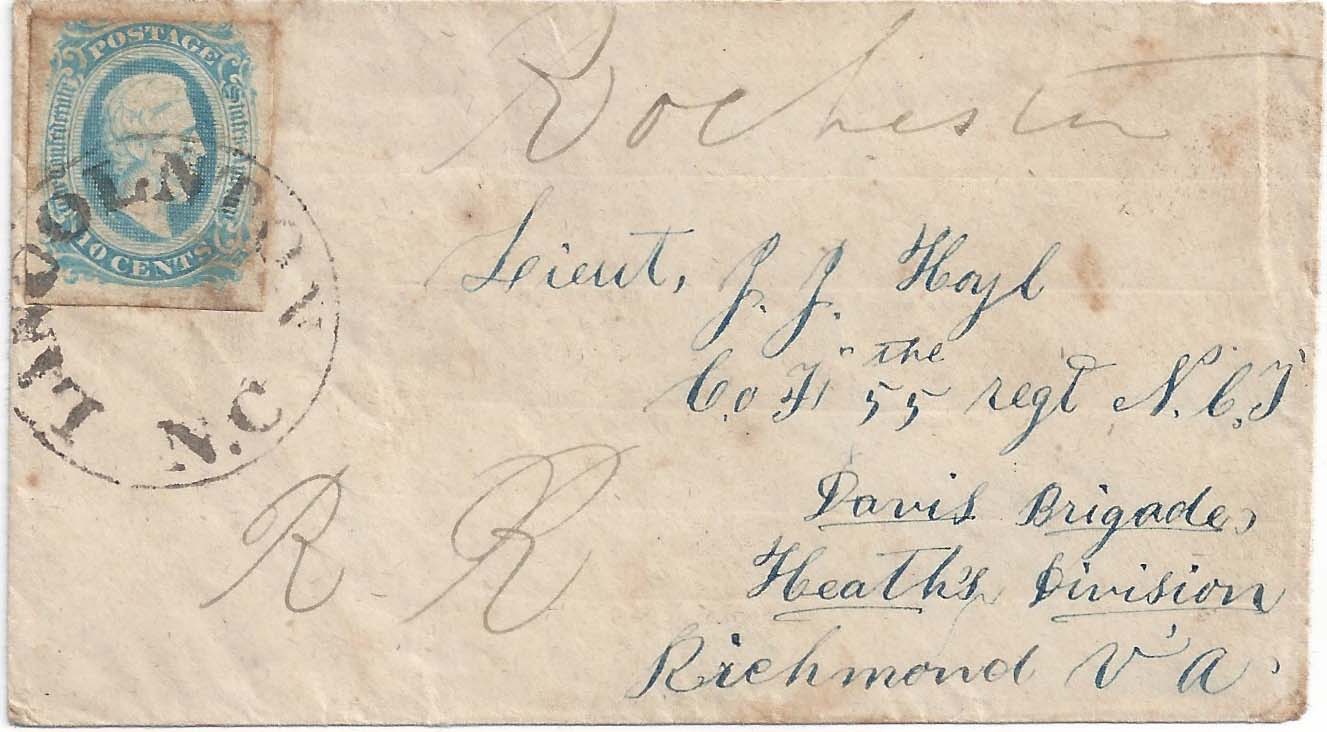 POSTAGE
The Confederate States of America
10 CENTS
LINCOLNTON
N.C
Rochester
Lieut, J. J. Hoyl
Co F " the
55 regt N.C.T
Davis Brigade,
Heath's Division
Richmond V'A.
R. R